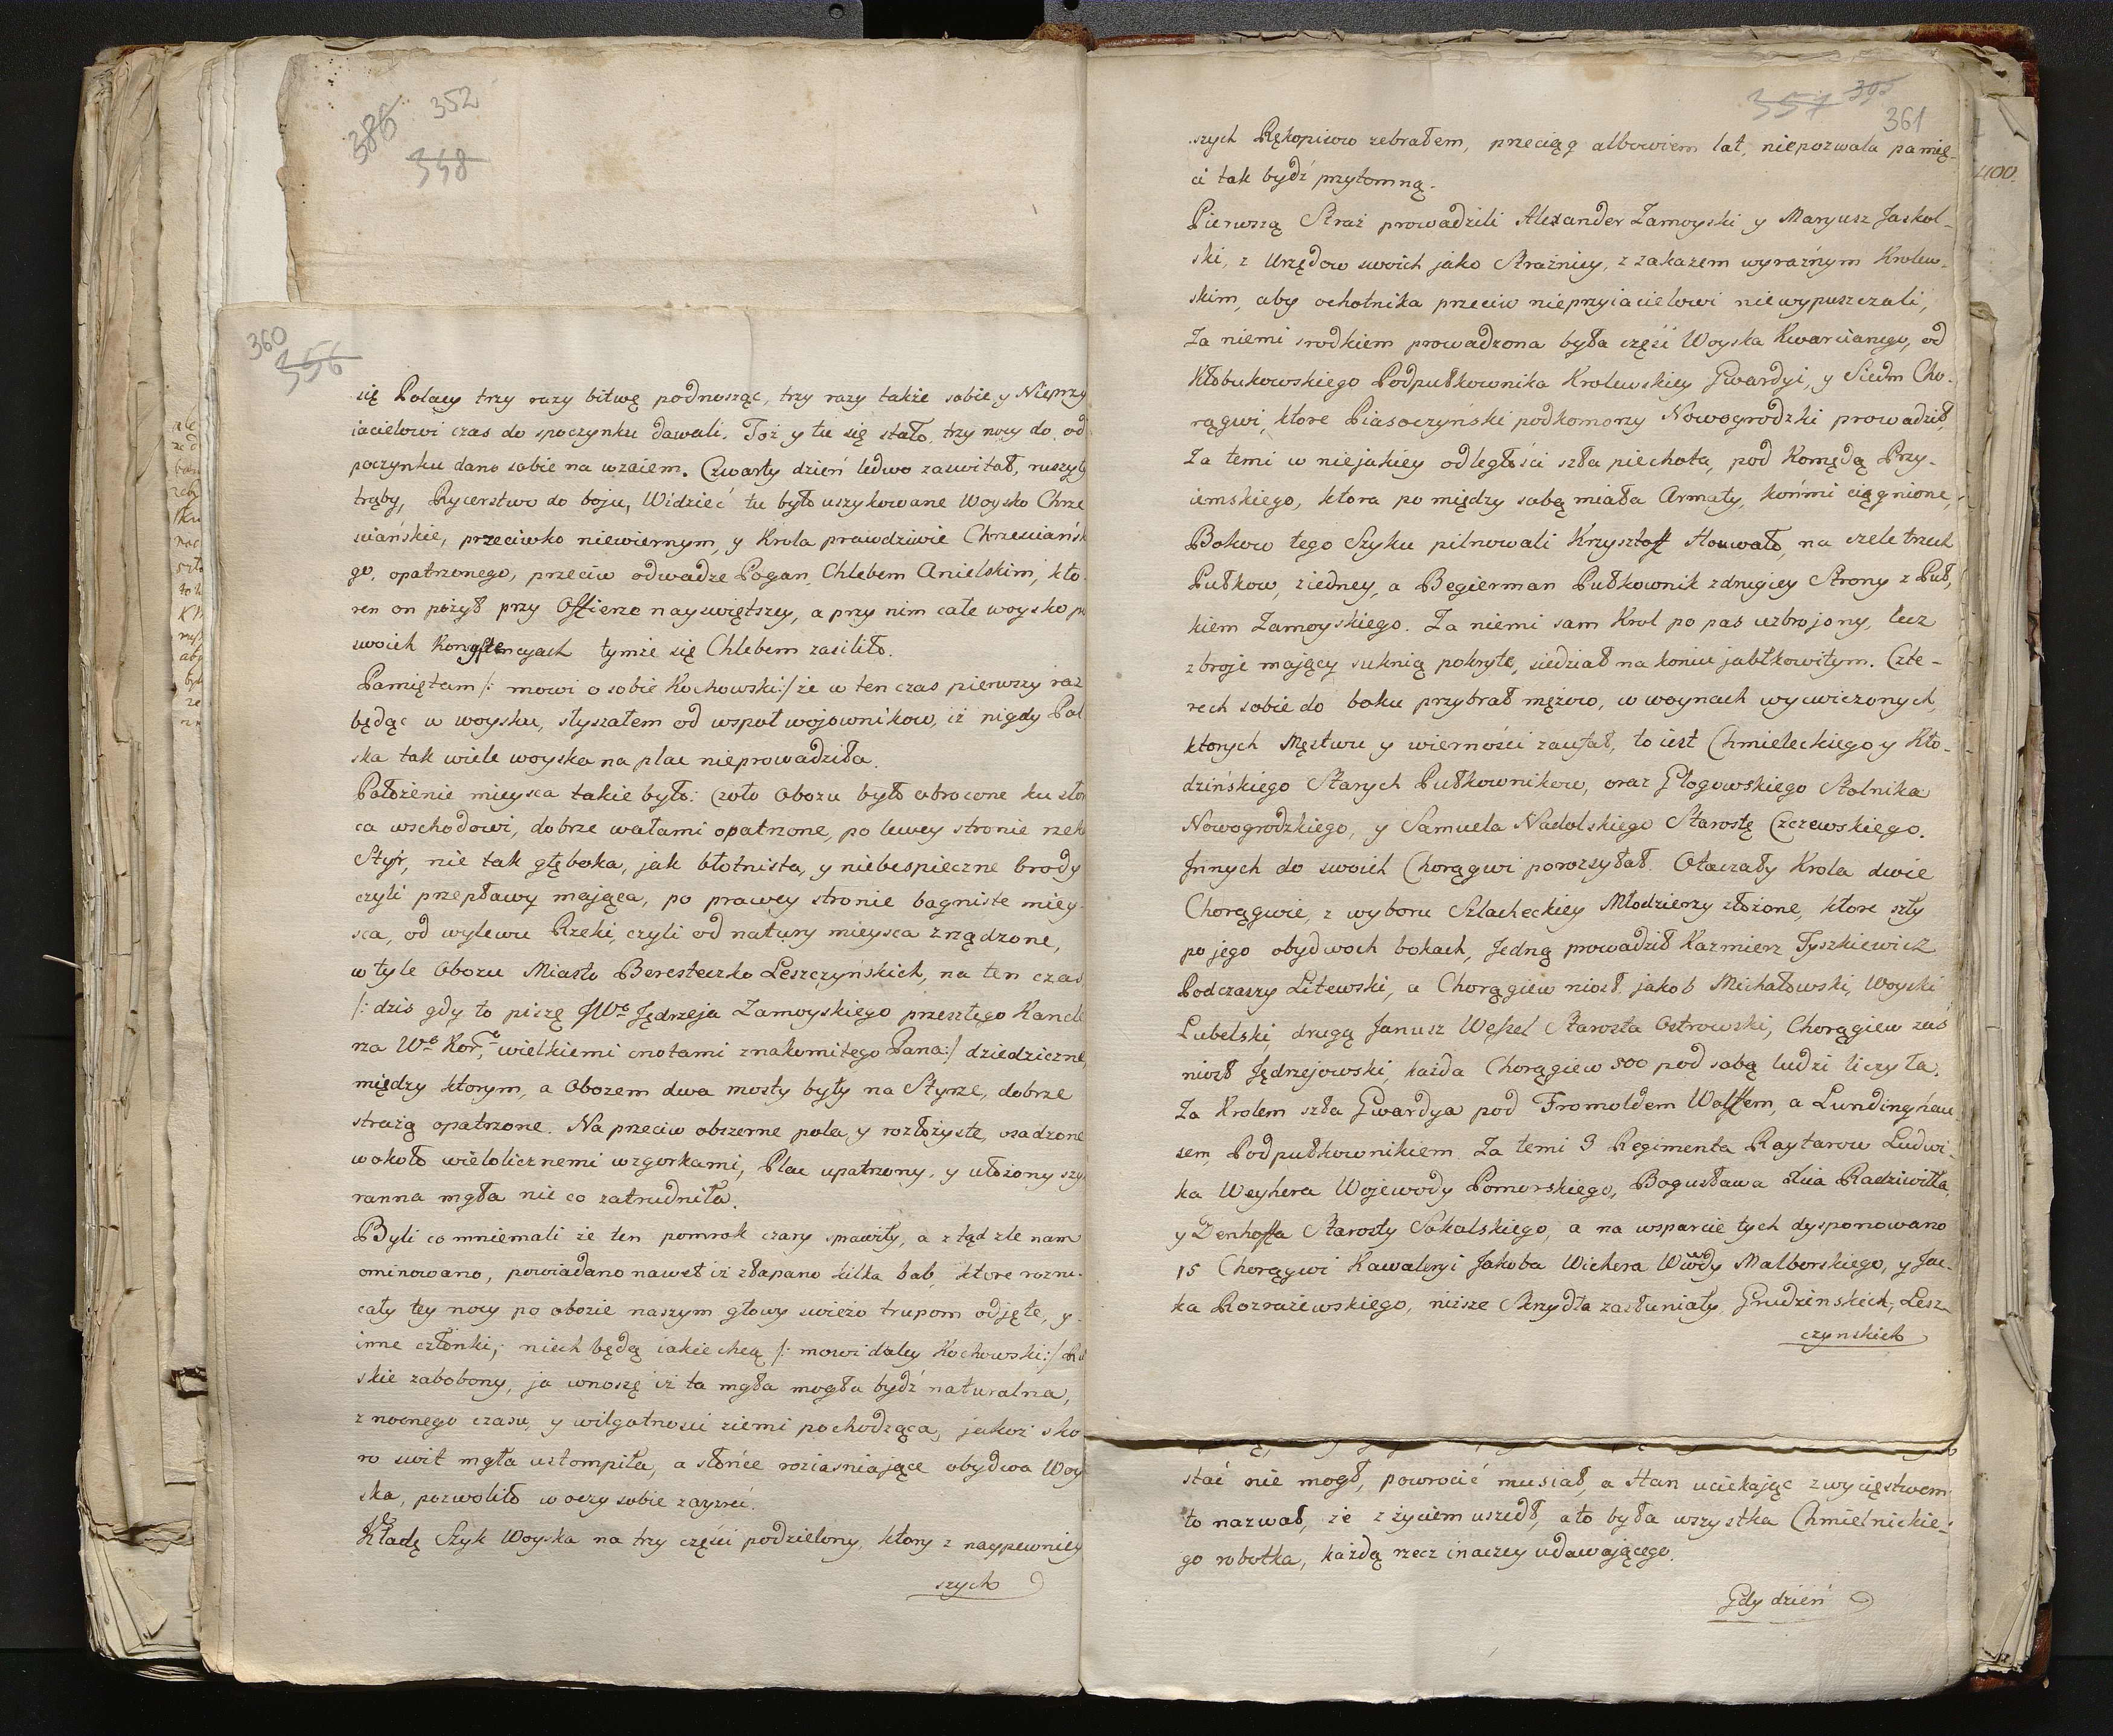 386 352
348
360
356
się Polacy trzy razy bitwę podnosząc, trzy razy także sobie, y Nieprzy
iacielowi czas do spoczynku dawali. Toż y tu się stało, trzy nocy do od
poczynku dano sobie na wzaiem. Czwarty dzień ledwo zaświtał, ruszyły
trąby, Rycerstwo do boju, Widzieć tu było uszykowane Woysko Chrze
sciańskie, przeciwko niewiernym, y Krola prawdziwie Chrzesciańsk
go, opatrzonego, przeciw odwadze Pogan, Chlebem Anielskim, kto
ren on pożył przy Offierze nayswiętszey, a przy nim całe woysko po
swoich Konsystencyach tymże się Chlebem zasiliło.
Pamiętam /: mowi o sobie Kochowski :/ że w ten czas pierwszy raz
będąc w woysku, słyszałem od wspoł wojownikow, iż nigdy Pol
ska tak wiele woyska na plac nieprowadziła.
Położenie mieysca takie było: Czoło Obozu było obrocone ku słoń
ca wschodowi, dobrze wałami opatrzone, po lewey stronie rzeka
Styr, nie tak głęboka, jak błotnista, y niebespieczne brody
czyli przepławy mająca, po prawey stronie bagniste miey
sca, od wylewu Rzeki, czyli od natury mieysca zrządzone,
w tyle Obozu Miasto Beresteczko Leszczyńskich, na ten czas
/: dzis gdy to piszę JWo Jędrzeja Zamoyskiego przeszłego Kancle
rza Wo Kor, wielkiemi cnotami znakomitego Pana :/ dziedziczne,
między ktorym, a Obozem dwa mosty były na Styrze, dobrze
strażą opatrzone. Na przeciw obszerne pola, y rozłożyste, osadzone
wokoło wielolicznemi wzgorkami, Plac upatrzony, y ułożony szy
ranna mgła nie co zatrudniła.
Byli co mniemali że ten pomrok czary sprawiły, a z tąd zle nam
ominowano, powiadano nawet iż złapano kilka bab, ktore rozru
cały tey nocy po obozie naszym głowy swieżo trupom odjęte, y
inne członki, niech będą iakie chcą /: mowi daley Kochowski :/
skie zabobony, ja wnoszę iż ta mgła mogła bydź naturalna,
z nocnego czasu, y wilgotnosci ziemi pochodząca, jakoż sko
ro swit mgła ustompiła, a słońce roziasniające obydwa Woy
ska, pozwoliło w oczy sobie zayzrzeć.
Kładę Szyk Woyska na trzy części podzielony, ktory z naypewniey
szych
357 395
361
szych Rękopisow zebrałem, przeciąg albowiem lat, niepozwala pamię-
ci tak bydź przytomną.
Pierwszą Straż prowadzili Alexander Zamoyski y Maryusz Jaskol-
ski, z Urzędow swoich jako Strażnicy, z zakazem wyraźnym Krolew-
skim, aby ochotnika przeciw nieprzyiacielowi niewypuszczali,
Za niemi srodkiem prowadzona była część Woyska Kwarcianego, od
Kłobukowskiego Podpułkownika Krolewskiey Gwardyi, y Siedm Cho-
rągwi, ktore Piasoczyński podkomorzy Nowogrodzki prowadził,
Za temi w niejakiey odległości szła piechota, pod Komędą Przy-
iemskiego, ktora po między sobą miała Armaty, końmi ciągnione,
Bokow tego Szyku pilnowali Krysztoff Houwald, na czele trzech
Pułkow, z iedney, a Begierman Pułkownik z drugiey Strony z Puł,
kiem Zamoyskiego. Za niemi sam Krol po pas uzbrojony, lecz
zbroje mający suknią pokrytę, siedział na koniu jabłkowitym. Czte-
rech sobie do boku przybrał mężow, w woynach wycwiczonych,
ktorych Męztwu y wierności zaufał, to iest Chmieleckiego y Kło-
dzińskiego Starych Pułkownikow, oraz Głogowskiego Stolnika
Nowogrodzkiego, y Samuela Nadolskiego Starostę Czczewskiego.
Jnnych do swoich Chorągwi porozsyłał. Otaczały Krola dwie
Chorągwie, z wyboru Szlacheckiey Młodzierzy złożone, ktore szły
po jego obydwoch bokach, Jedną prowadził Kazmierz Tyszkiewicz
Podczaszy Litewski, a Chorągiew niosł jakob Michałowski, Woyski
Lubelski, drugą Janusz Wessel Starosta Ostrowski, Chorągiew zaś
niosł Jędrzejowski, każda Chorągiew 800 pod sobą ludzi liczyła.
Za Krolem szła Gwardya pod Fromoldem Wolffem, a Lundinghau-
sem, Podpułkownikiem. Za temi 3 Regimenta Raytarow Ludwi-
ka Weyhera Wojewody Pomorskiego, Bogusława Xcia Radziwiłła,
y Denhoffa Starosty Sokalskiego, a na wsparcie tych dysponowano
15 Chorągwi Kawaleryi Jakoba Wichera Wwody Malborskiego, y Jac-
ka Rozrażewskiego, niższe Skrzydła zasłuniały, Grudzinskich, Lesz-
czynskich
stać nie mogł, powrocić musiał, a Han uciekając zwycięstwem
to nazwał, że z życiem uszedł, a to była wszystka Chmielnickie-
go robotka, każdą rzecz inaczey udawającego.
Gdy dzień
400